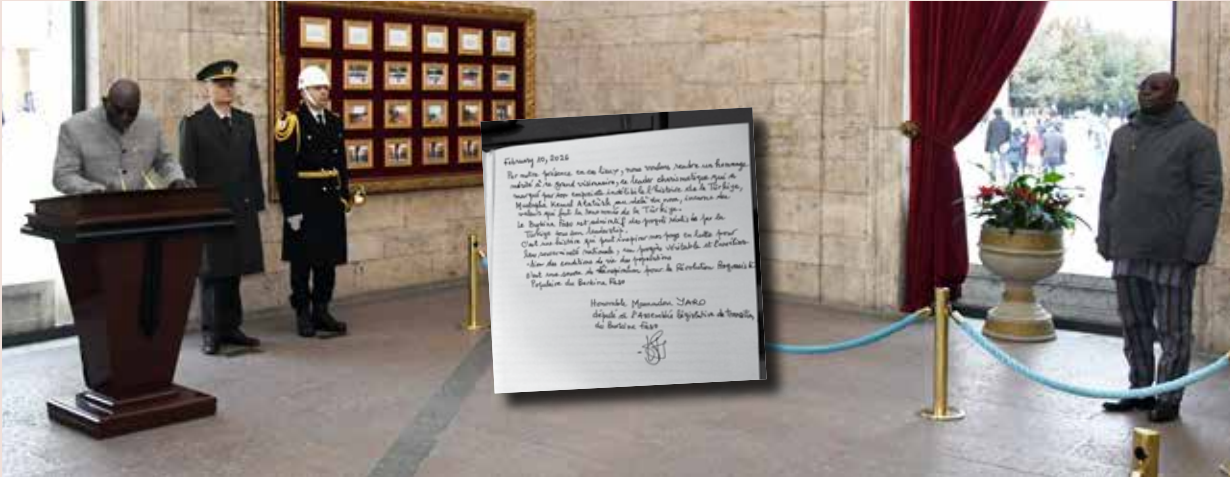 February 10, 2026
Par notre présence en ces lieux, nous voulons rendre un hommage
mérité à ce grand visionnaire, ce leader charismatique qui a
marqué par son empreinte indélébile l'histoire de la Türkiye,
Mustapha Kemal Atatürk au-delà du nom, incarne des
valeurs qui font la renommée de la Türkiye.
Le Burkina Faso est admiratif des progrès réalisés par la
Türkiye sous son leadership.
C'est une histoire qui peut inspirer nos pays en lutte pour
leur souveraineté nationale, un progrès véritable et l'améliora-
-tion des conditions de vie des populations
C'est une source d'inspiration pour la Révolution Progressiste
Populaire du Burkina Faso
Honorable Mamadou YARO
député de l'Assemblée législative de Transition
du Burkina Faso